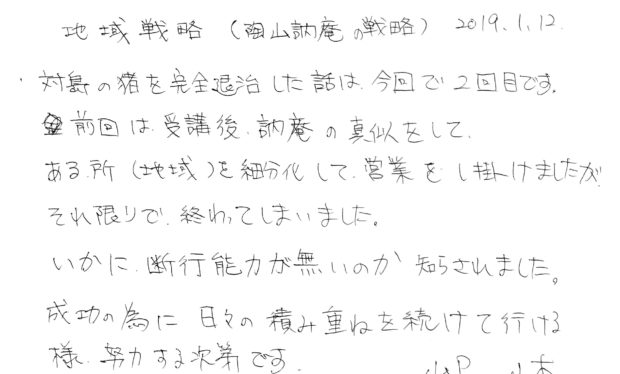 地域戦略（陶山訥庵の戦略） 2019.1.12.
・対島の猪を完全退治した話は、今回で2回目です。
前回は、受講後、訥庵の真似をして、
ある所（地域）を細分化して、営業をし掛けましたが
それ限りで、終わってしまいました。
いかに、断行能力が無いのか知らされました。
成功の為に日々の積み重ねを続けて行ける
様、努力する次第です。